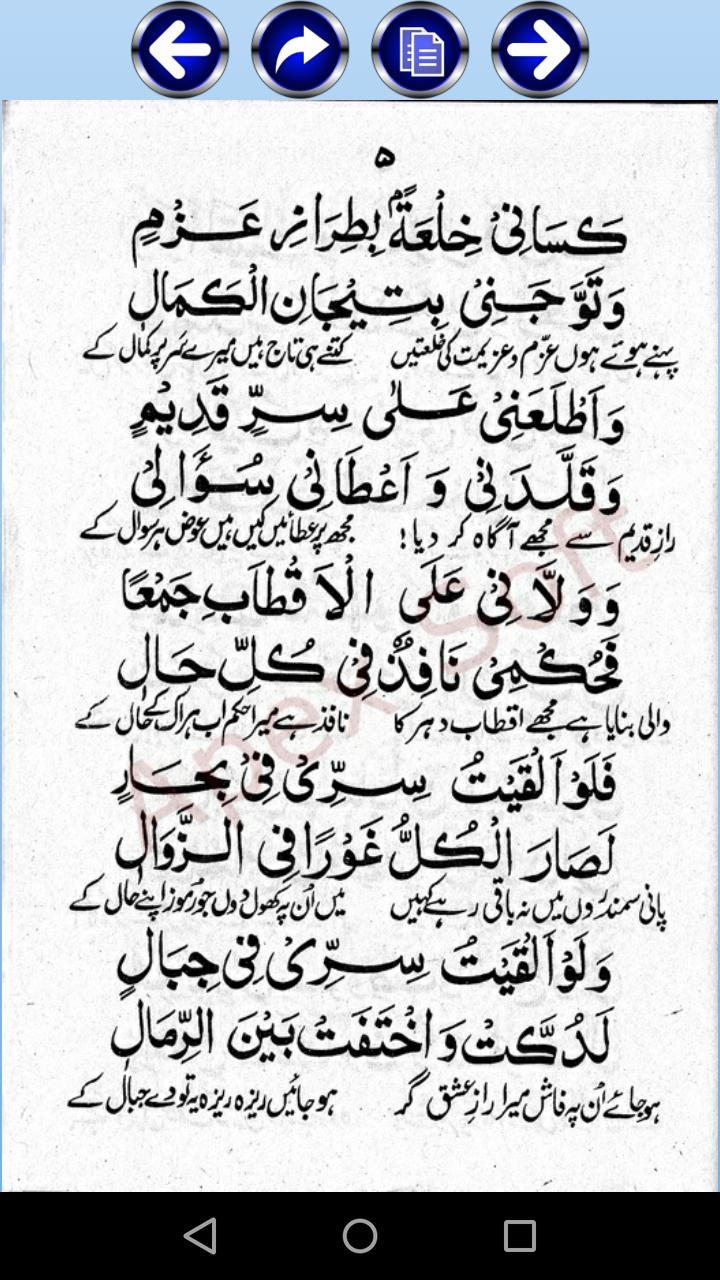 ۵
كَسَانِيْ خِلْعَةًۢ بِطِرَازِ عَزْمٍ
وَتَوَّجَنِيْ بِتِيْجَانِ الْكَمَالِ
پہنے ہوئے ہوں عزم و عزیمت کی خلعتیں کتنے ہی تاج ہیں میرے سر پر کمال کے
وَاَطْلَعَنِيْ عَلٰى سِرٍّ قَدِيْمٍ
وَقَلَّدَنِيْ وَ اَعْطَانِيْ سُؤَالِيْ
رازِ قدیم سے مجھے آگاہ کر دیا! مجھ پر عطائیں کیں ہیں عوض ہر سوال کے
وَوَلَّانِيْ عَلَى الْاَقْطَابِ جَمْعًا
فَحُكْمِيْ نَافِذٌ فِيْ كُلِّ حَالِ
والی بنایا ہے مجھے اقطاب دہر کا نافذ ہے میرا حکم اب ہر اک کے حال کے
فَلَوْ اَلْقَيْتُ سِرِّيْ فِيْ بِحَارٍ
لَصَارَ الْكُلُّ غَوْرًا فِي الزَّوَالِ
پانی سمندروں میں نہ باقی رہے کہیں میں اُن پہ کھول دوں جو رموز اپنے حال کے
وَلَوْ اَلْقَيْتُ سِرِّيْ فِيْ جِبَالٍ
لَدُكَّتْ وَاخْتَفَتْ بَيْنَ الرِّمَالِ
ہو جائے اُن پہ فاش میرا رازِ عشق گر ہو جائیں ریزہ ریزہ یہ تودے جبال کے
Apex Soft